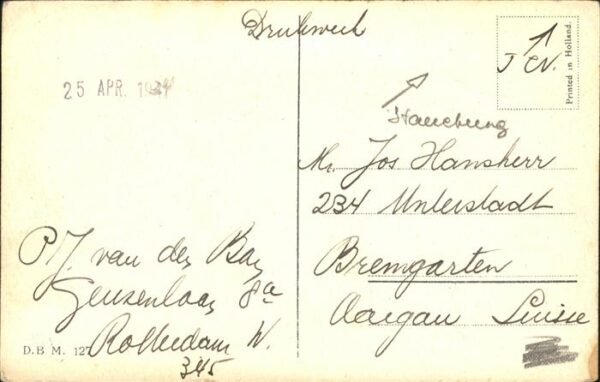 Drukwerk
25 APR. 1934
Printed in Holland.
Hamburg
Mr. Jos Hausherr
234 Unterstadt
Bremgarten
Aargau Suisse
P.J. van der Bay
Geuzenlaan 8a
Rotterdam W.
345
D.B M. 127